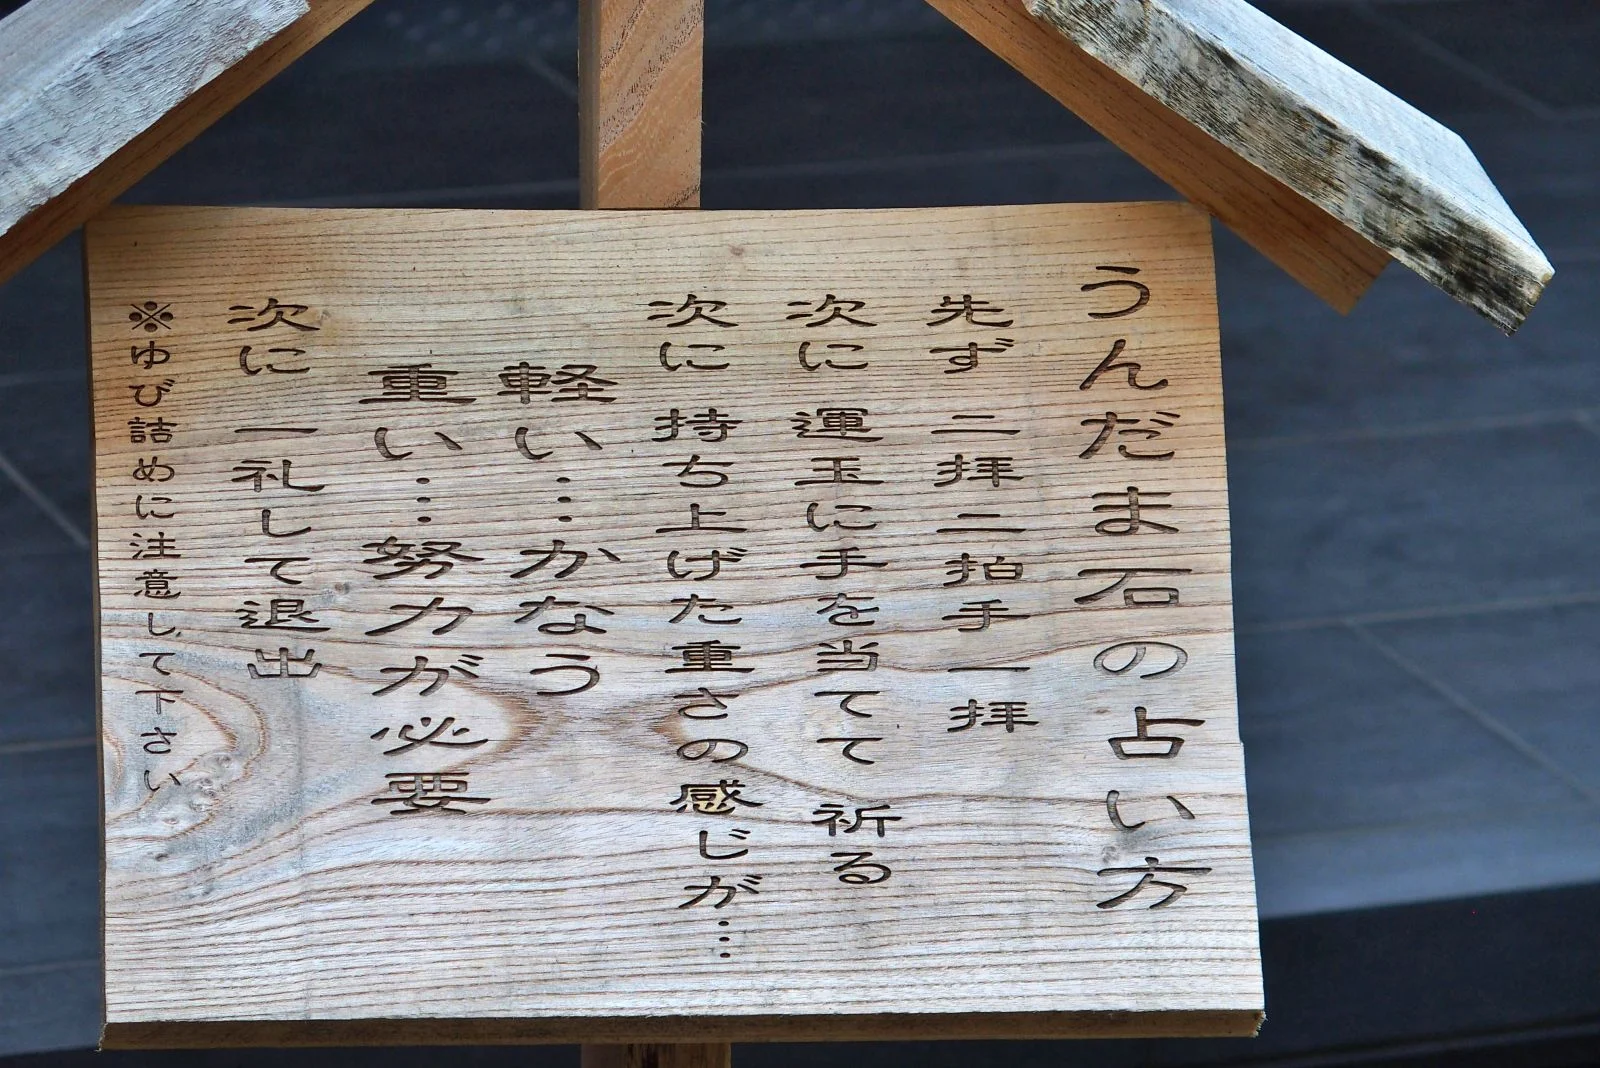 うんだま石の占い方
先ず 二拝二拍手一拝
次に 運玉に手を当てて 祈る
次に 持ち上げた重さの感じが…
軽い…かなう
重い…努力が必要
次に 一礼して退出
※ゆび詰めに注意して下さい